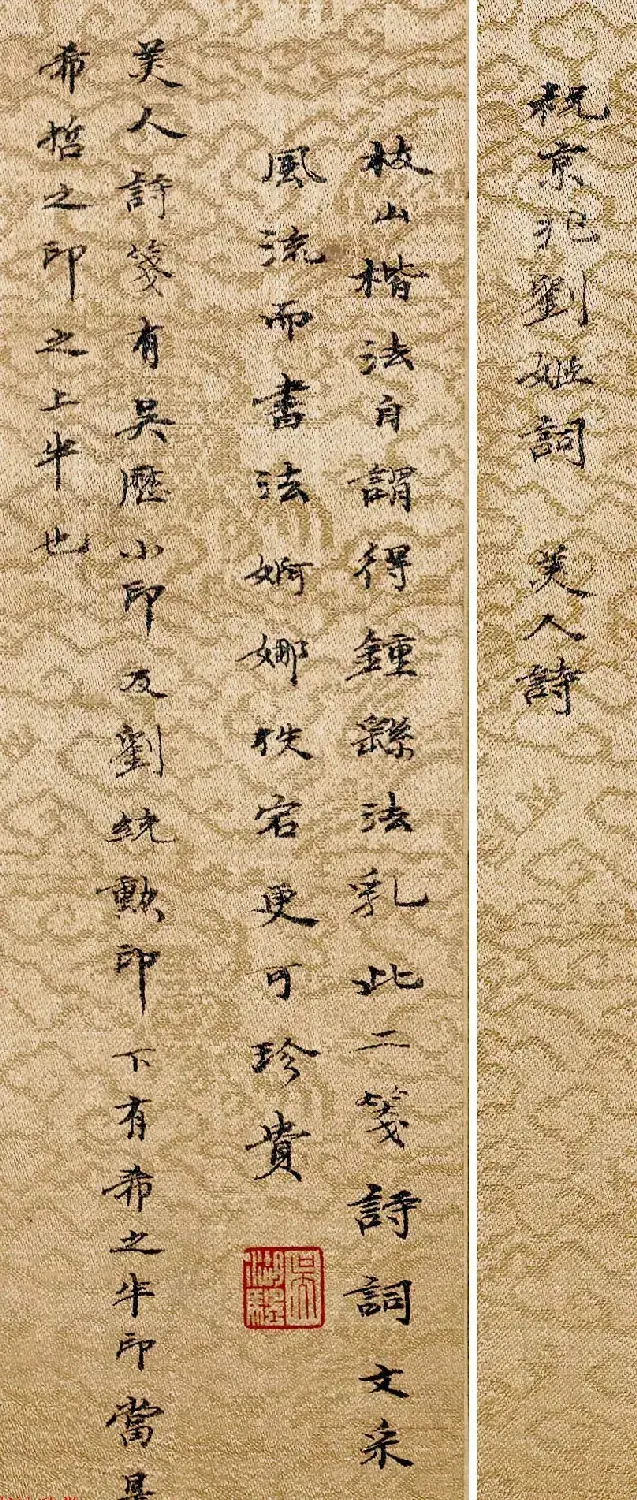 祝京兆劉姬詞 美人詩
枝山楷法自謂得鍾繇法乳此二箋詩詞文采
風流而書法婀娜跌宕更可珍貴
吳湖颿
美人詩箋有吳歷小印及劉統勳印下有希之半印當是
希哲之印之上半也